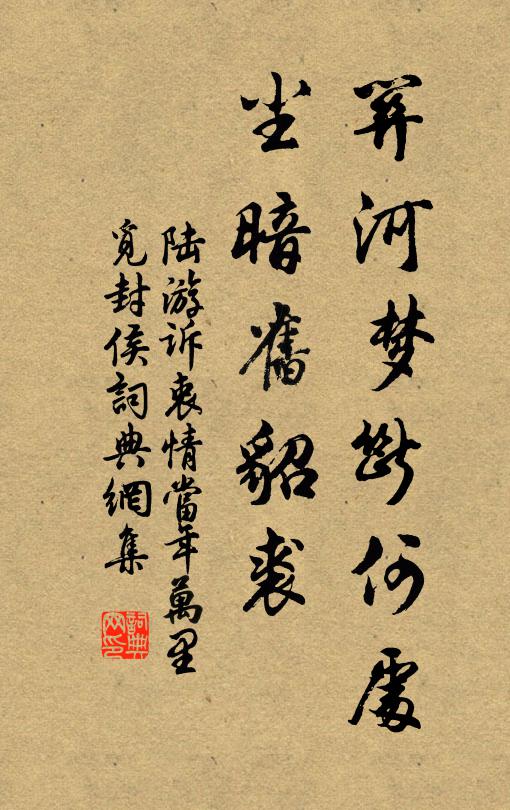 關河夢斷何處
尘暗舊貂裘
陆游诉衷情當年萬里
覓封侯詞典網集
詞典网印